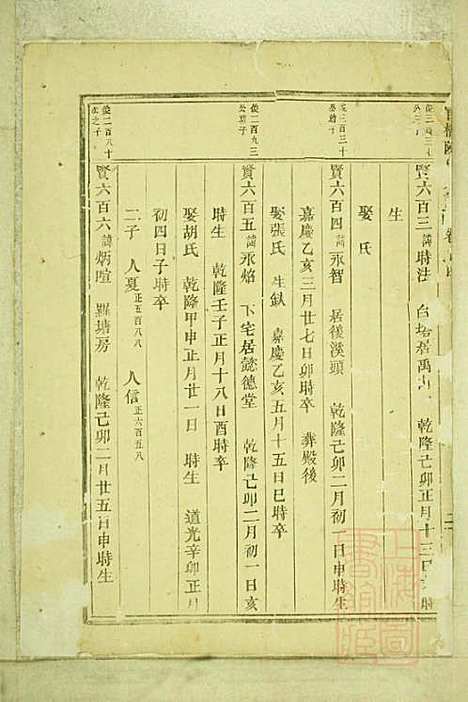 賢六百三 諱時法 白塔居禹山 乾隆己卯正月十三日 時
生
娶 氏
賢六百四 諱永智 居後溪頭 乾隆己卯二月初一日申時生
嘉慶乙亥三月廿七日卯時卒 葬殿後
娶張氏 生缺 嘉慶乙亥五月十五日巳時卒
俊二百九三
公 子
賢六百五 諱永焰 下宅居懿德堂 乾隆己卯二月初一日亥
時生 乾隆壬子正月十八日酉時卒
娶胡氏 乾隆甲申正月廿一日 時生 道光辛卯正月
初四日子時卒
二子 人夏正五百八八 人信正六百五八
俊二百八十
公之子
賢六百六 諱炳暄 羅塘房 乾隆己卯二月廿五日申時生